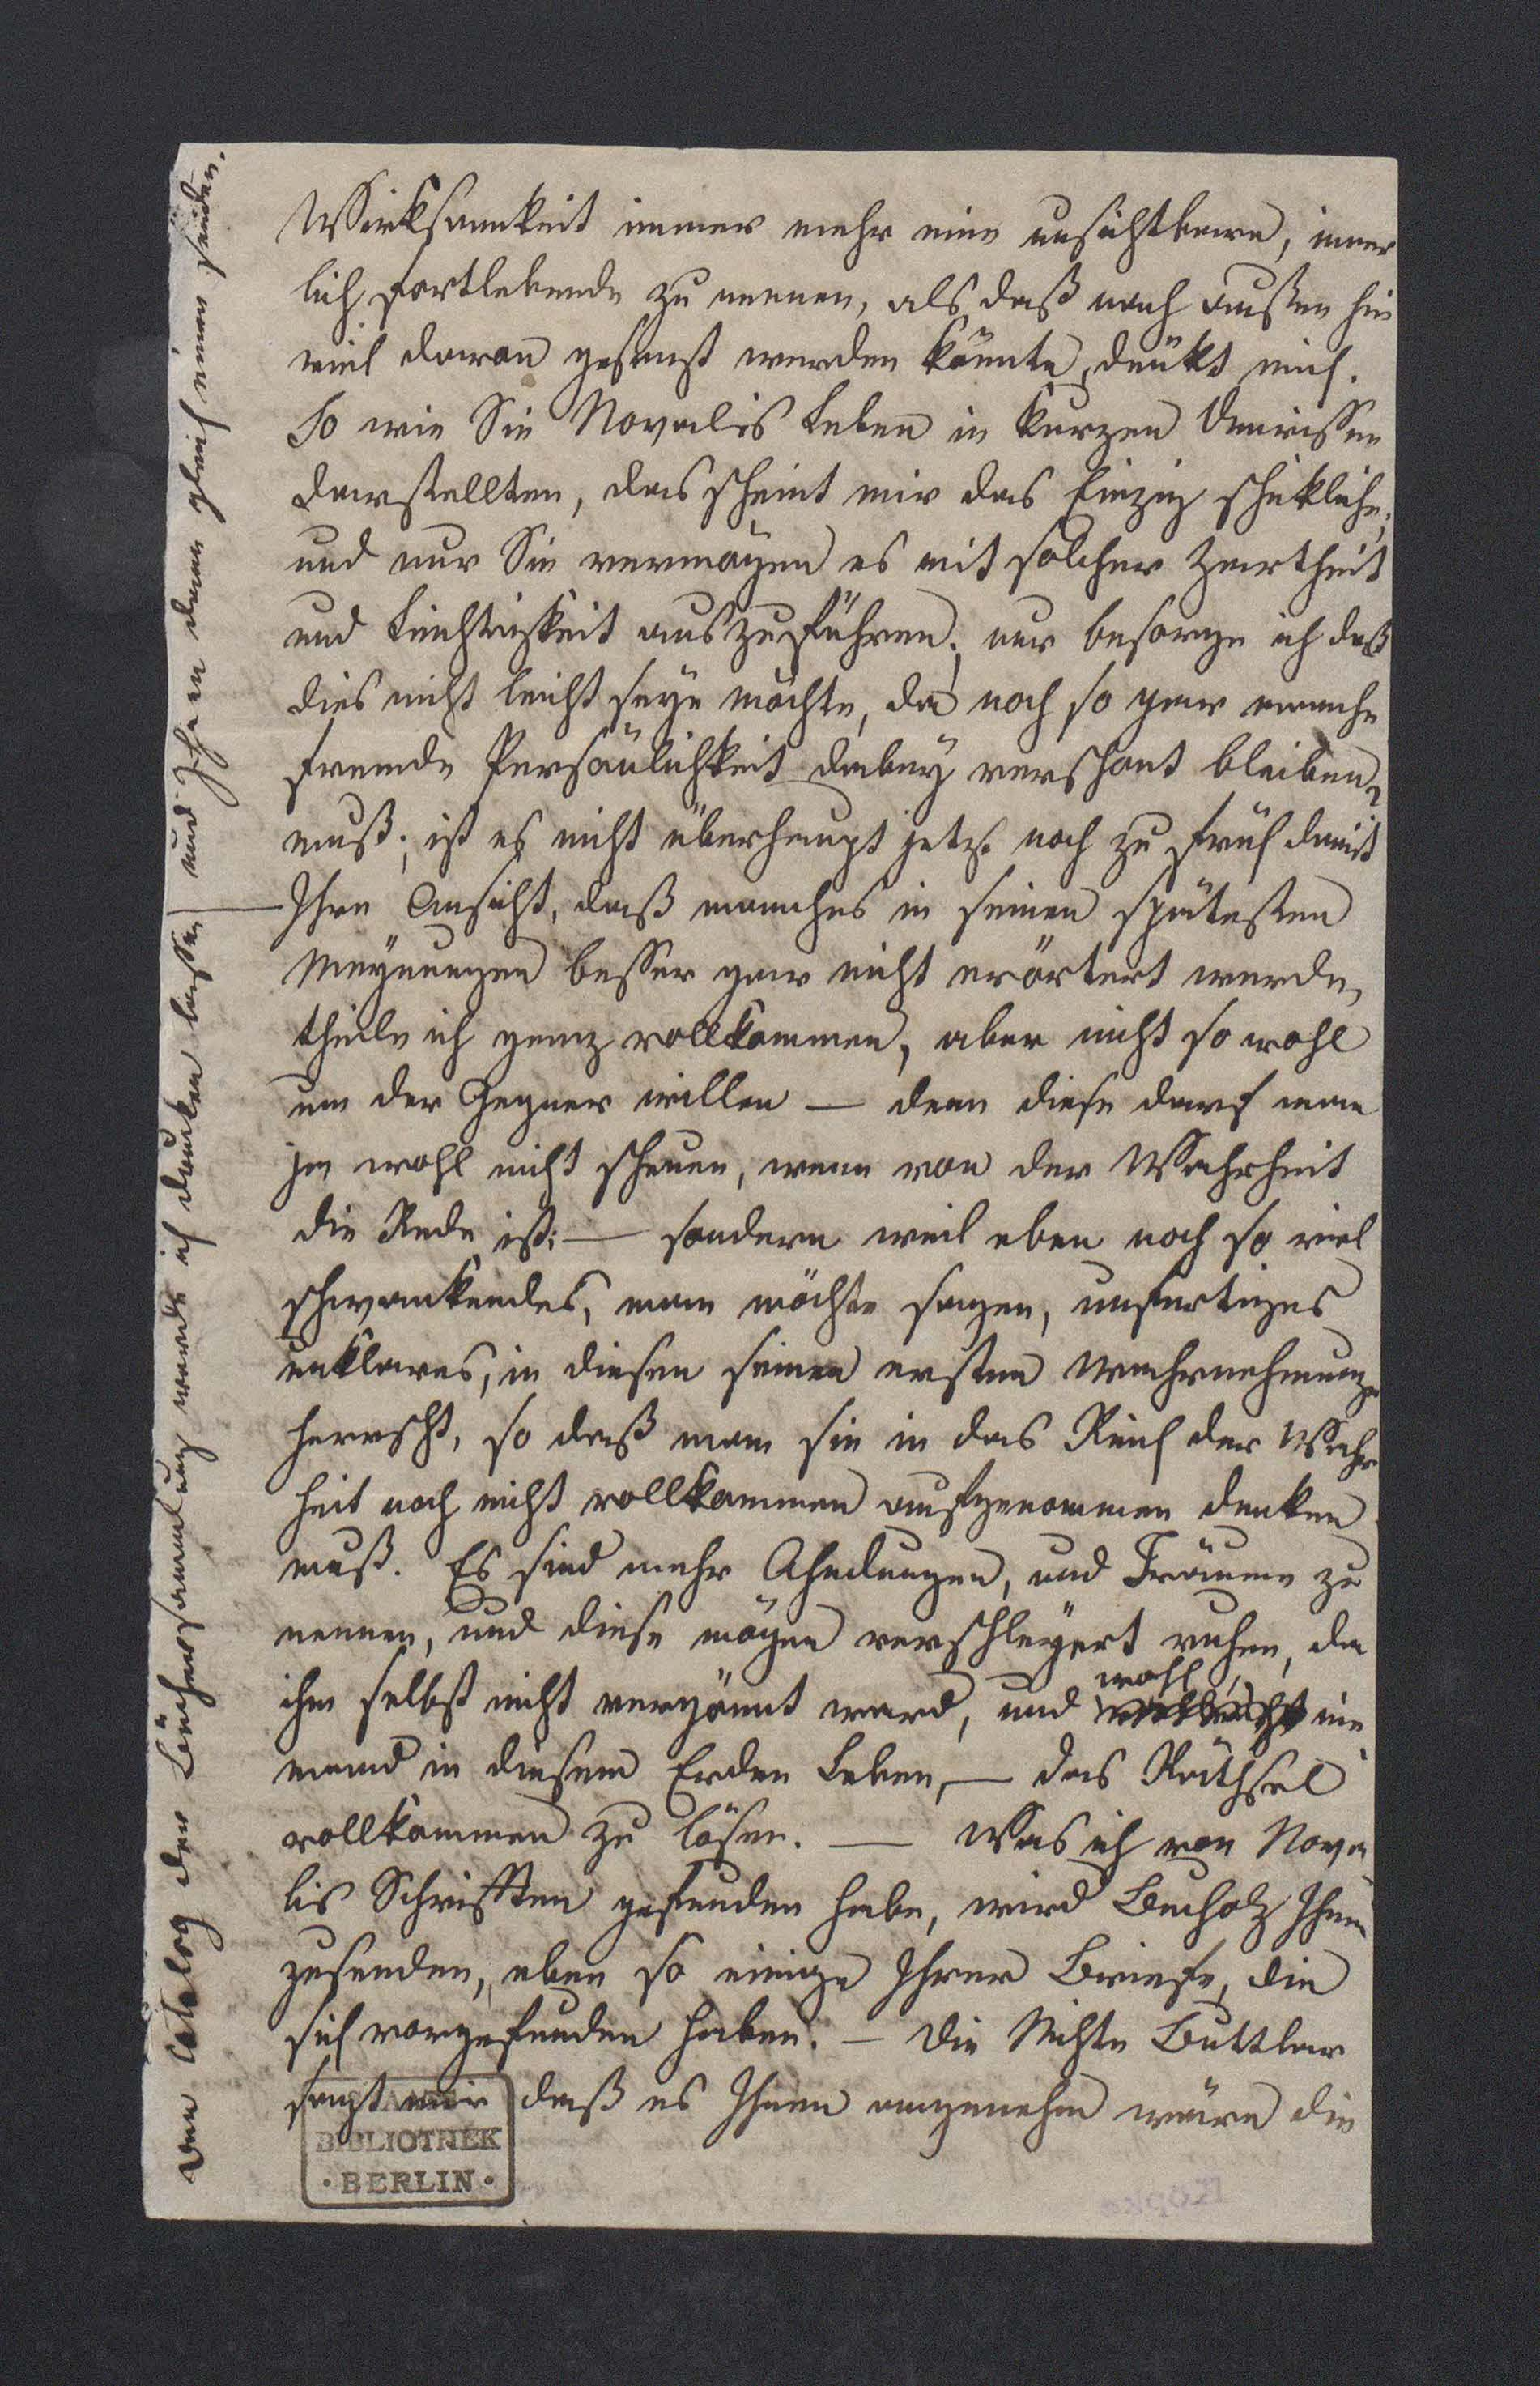 Wirksamkeit immer mehr eine unsichtbare, inner
lich fortlebende zu nennen, als daß nach außen hin
viel davon gesagt werden könnte, deükt mich.
So wie Sie Novalis Leben in kurzen Umrissen
darstellten, das scheint mir das Einzig schikliche,
und nur Sie vermögen es mit solcher Zartheit
und Leichtigkeit auszuführen; nur besorge ich daß
dies nicht leicht seyn möchte, da noch so gar manche
fremde Persönlichkeit dabey verschont bleiben
muß; ist es nicht überhaupt jetzt noch zu früh damit?
Ihre Ansicht, daß manches in seinen spätesten
Meynungen besser gar nicht erörtert werde,
theile ich ganz vollkommen, aber nicht so wohl
um der Gegner willen — denn diese darf man
ja wohl nicht scheuen, wenn von der Wahrheit
die Rede ist; — sondern weil eben noch so viel
schwankendes, man möchte sagen, unfertiges
unklares, in diesen seinen ersten Wahrnehmungen
herrscht, so daß man sie in das Reich der Wahr
heit noch nicht vollkommen aufgenommen denken
muß. Es sind mehr Ahndungen, und Träume zu
nennen, und diese mögen verschleyert ruhen, da
ihm selbst nicht vergönnt ward, und wohl vielleicht nie
mand in diesem Erden Leben, — das Räthsel
vollkommen zu lösen. — Was ich von Nova
lis Schrifften gefunden habe, wird Bucholz Ihnen
zusenden, eben so einige Ihrer Briefe, die
sich vorgefunden haben. — Die Nichte Buttlar
sagt mir daß es Ihnen angenehm wäre die
Den Catalog der Büchersammlung werde ich drucken lassen, und Ihnen dann gleich einen senden.
BIBLIOTHEK
· BERLIN ·